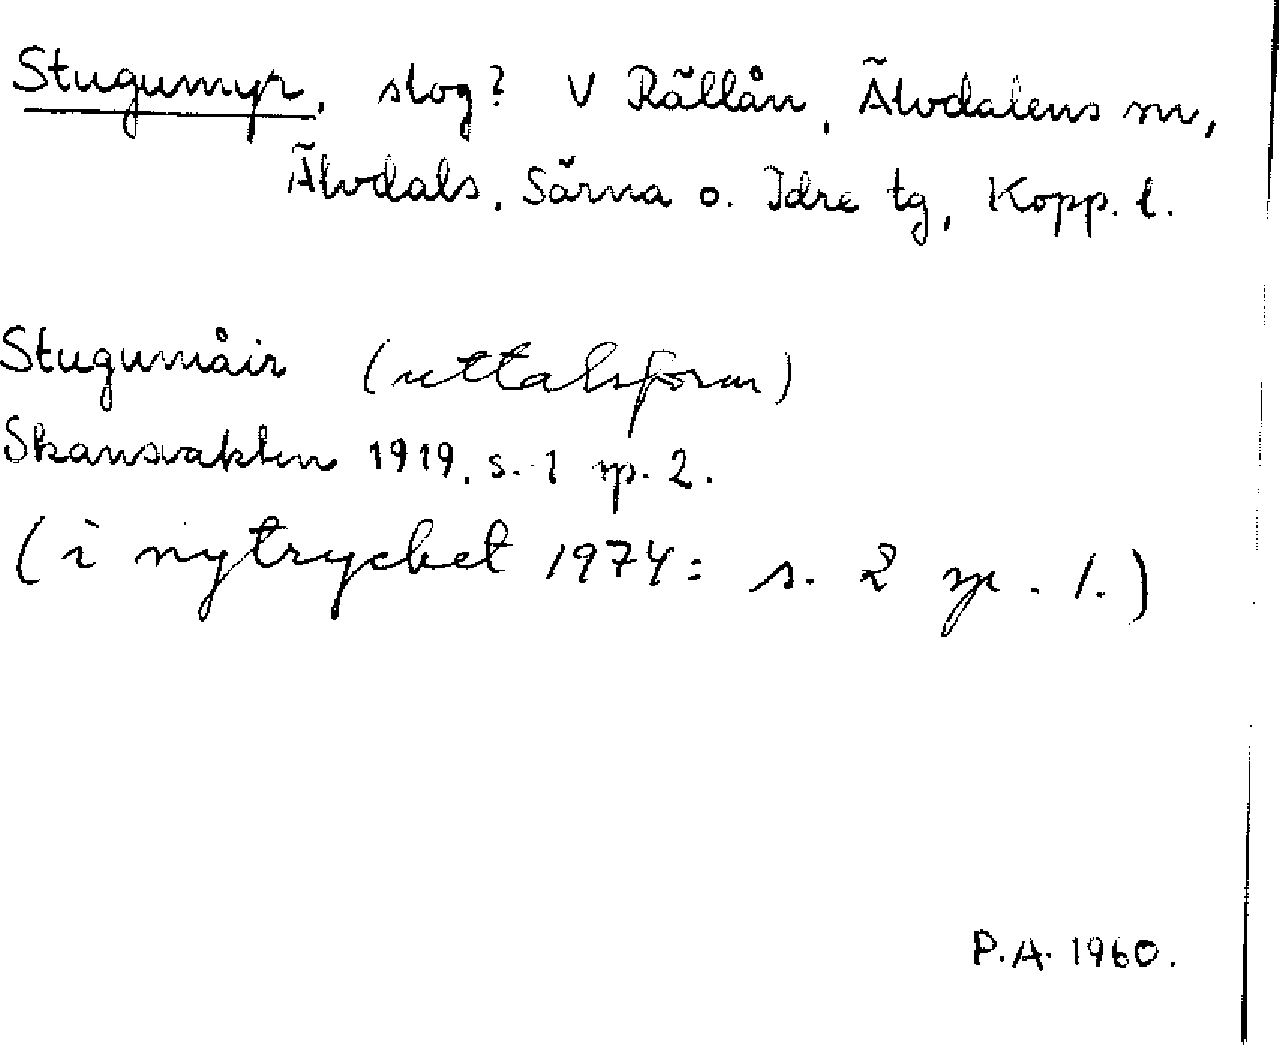 Stugumyr, slog? V Rällån, Älvdalens sn,
Älvdals, Särna o. Idre tg, Kopp. l.
Stugumåir (uttalsform)
Skansvakten 1919, s. 1 sp. 2.
(i nytrycket 1974: s. 2 sp. 1.)
P.A. 1960.